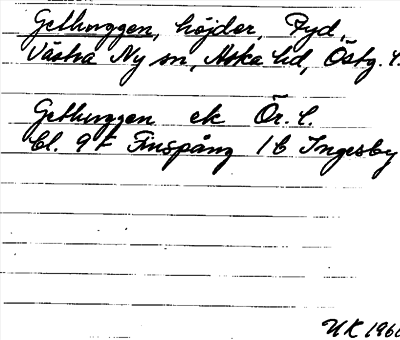 Gethuggen, höjder, Ryd,
Västra Ny sn, Aska hd, Östg. l.
Gethuggen ek Ör. l.
bl. 9 F Finspång 1 b Ingesby
UK 1960